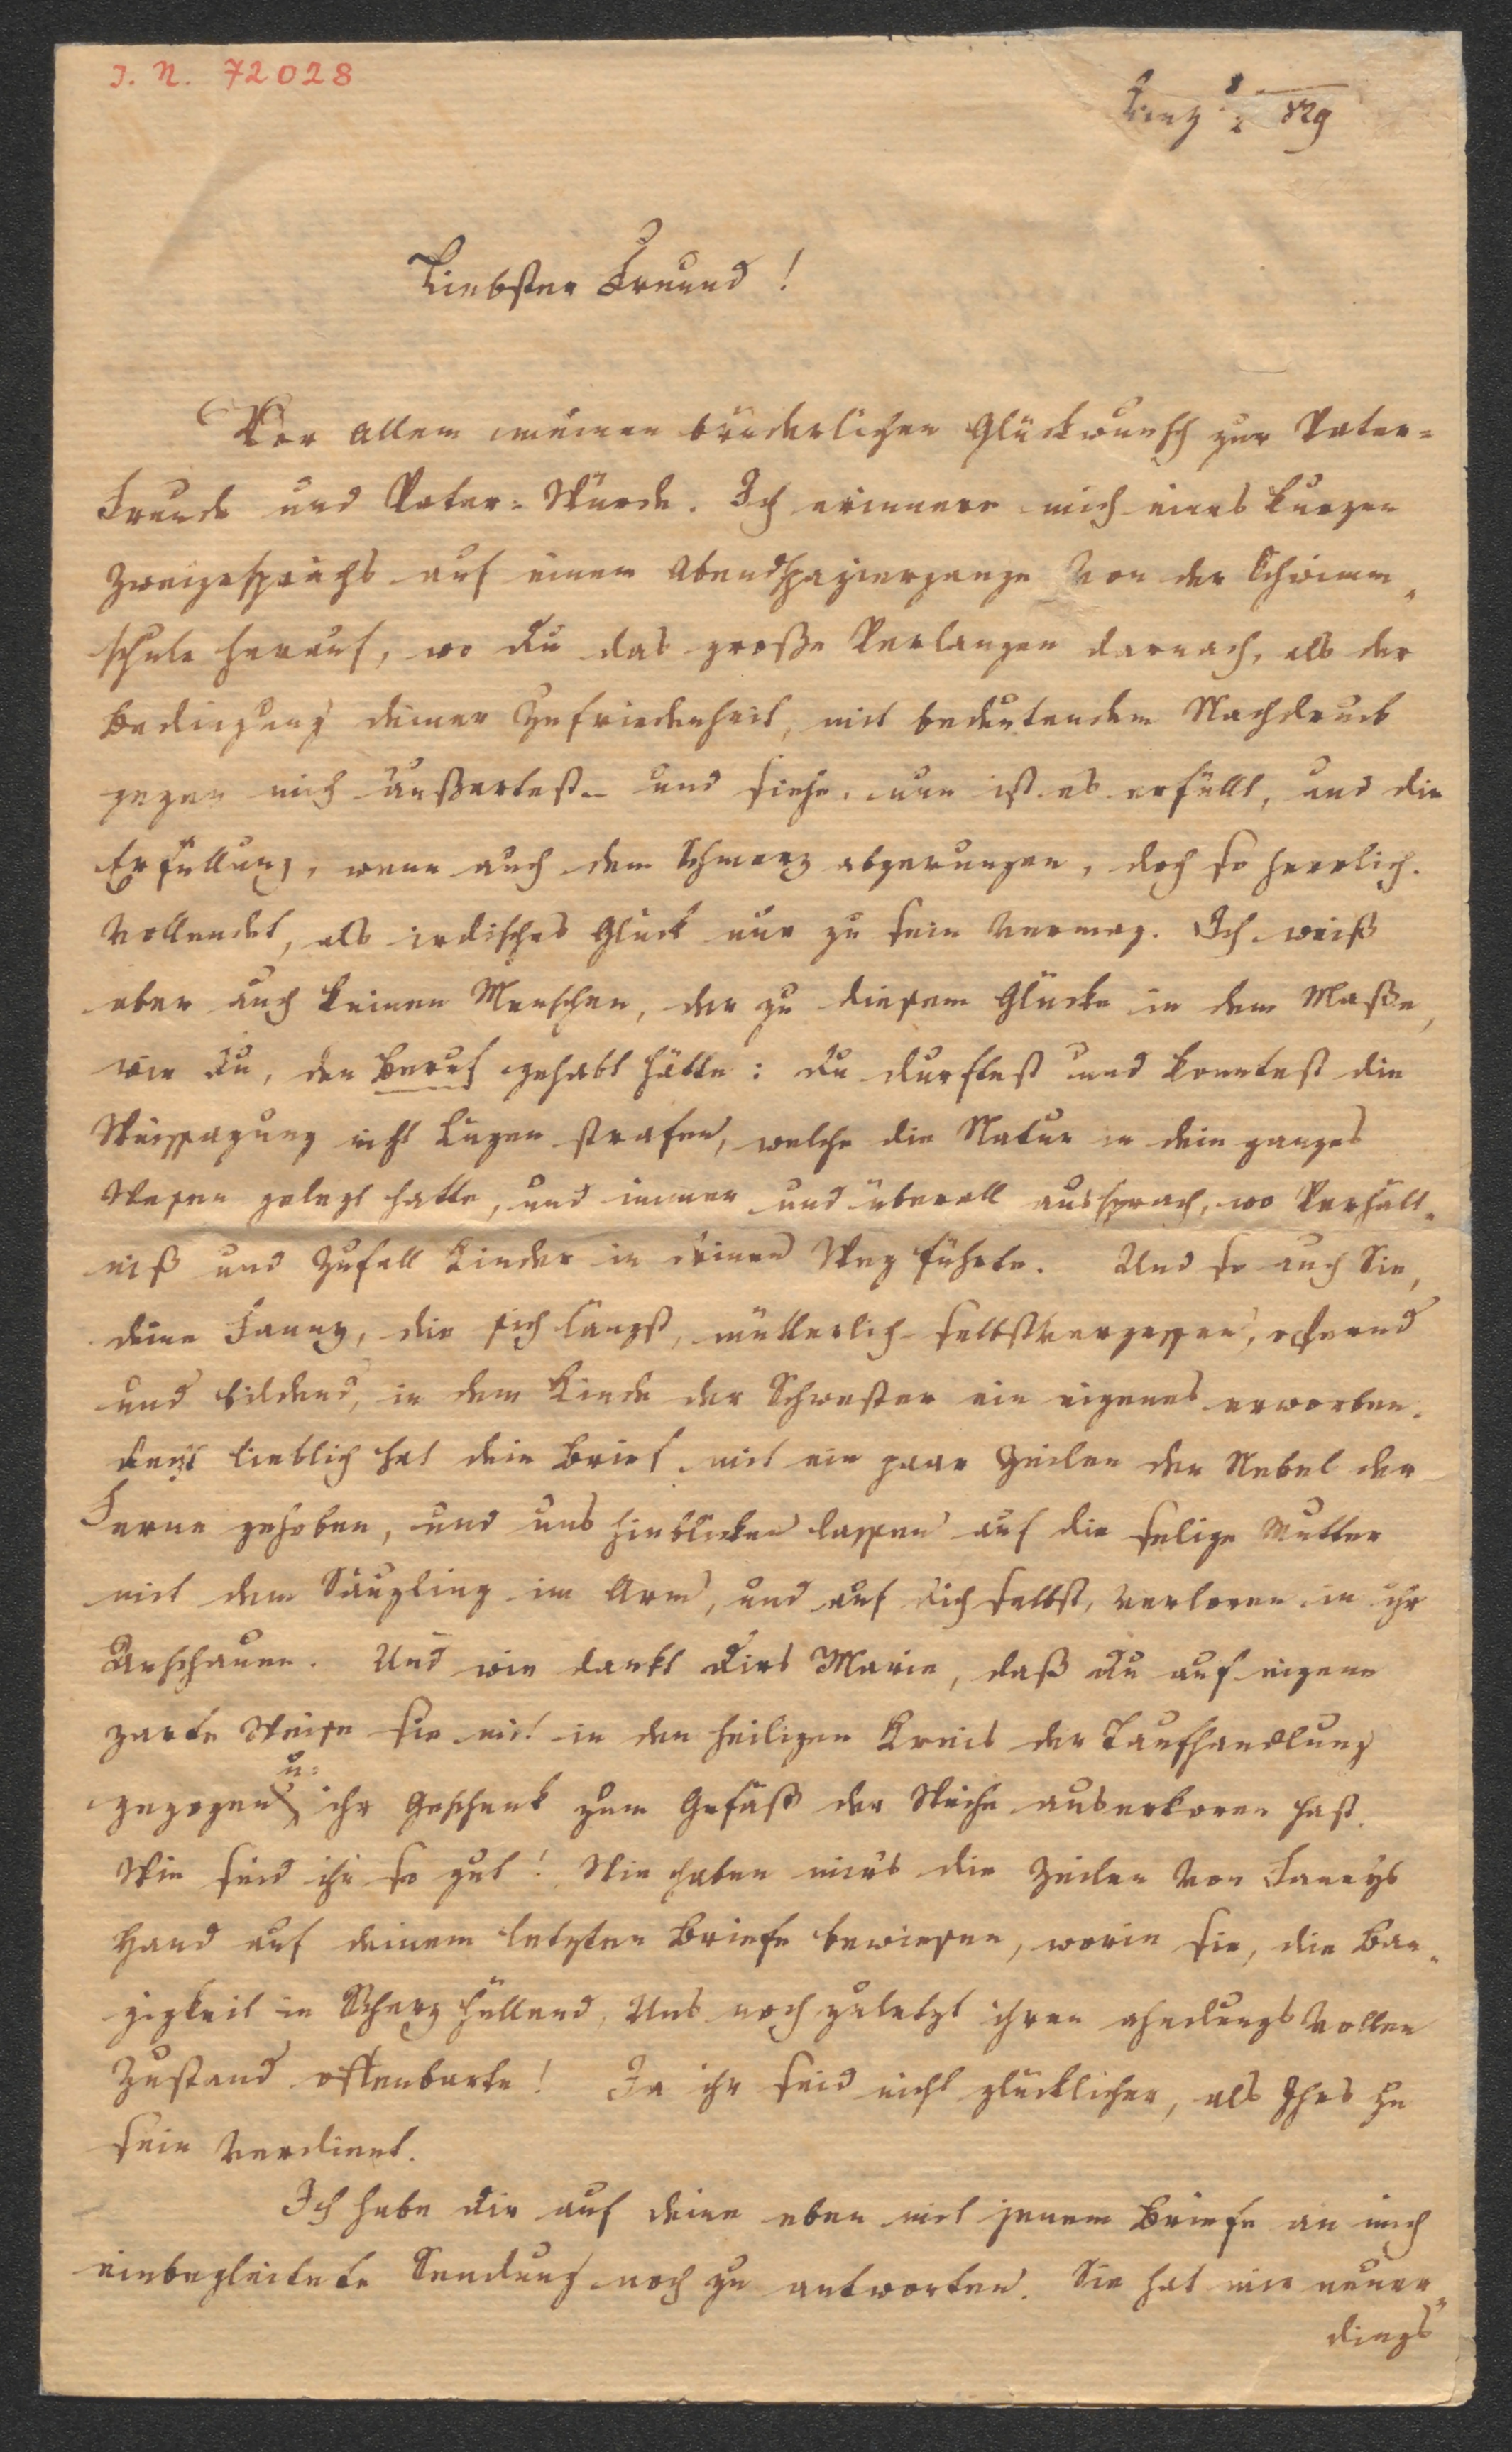 I. N. 72028
Linz 8/2 829
Liebster Freund!
Vor allem meinen brüderlichen Glückwunsch zur Vater-
Freude und Vater-Würde. Ich erinnere mich eines kurzen
Zweigesprächs auf einem Abendspaziergange von der Schwimm-
schule herauf, wo Du das große Verlangen darnach, als der
Bedingung deiner Zufriedenheit, mit bedeutendem Nachdruck
gegen mich äußertest – und siehe, nun ist es erfüllt, und die
Erfüllung, wenn auch dem Schmerz abgerungen, doch so herrlich
vollendet, als irdisches Glück nur zu sein vermag. Ich weiß
aber auch keinen Menschen, der zu diesem Glücke in dem Maße,
wie Du, den Beruf gehabt hätte: Du durftest und konntest die
Weissagung nicht Lügen strafen, welche die Natur in dein ganzes
Wesen gelegt hatte, und immer und überall aussprach, wo Verhält-
niß und Zufall Kinder in deinen Weg führte. Und so auch Sie,
deine Fanny, die sich längst, mütterlich selbstvergessen, opfernd
und bildend, in dem Kinde der Schwester ein eigenes erworben.
lieblich hat dein Brief mit ein paar Zeilen den Nebel der
Ferne gehoben, und uns hinblicken lassen auf die selige Mutter
mit dem Säugling im Arm, und auf dich selbst, verloren in ihr
Anschauen. Und wie dankt Dirs Marie, daß Du auf eigene
zarte Weise sie mit in den heiligen Kreis der Taufhandlung
gezogen u: ihr Geschenk zum Gefäß der Weihe auserkoren hast.
Wie seid ihr so gut! Wie haben mirs die Zeilen von Fannys
Hand auf deinem letzten Briefe bewiesen, worin sie, die Ban-
gigkeit in Scherz hüllend, Uns noch zuletzt ihren ahndungsvollen
Zustand offenbarte! Ja ihr seid nicht glücklicher, als Ihrs zu
sein verdient.
Ich habe Dir auf deine eben mit jenem Briefe an mich
einbegleitete Sendung noch zu antworten. Sie hat mir neuer-
dings